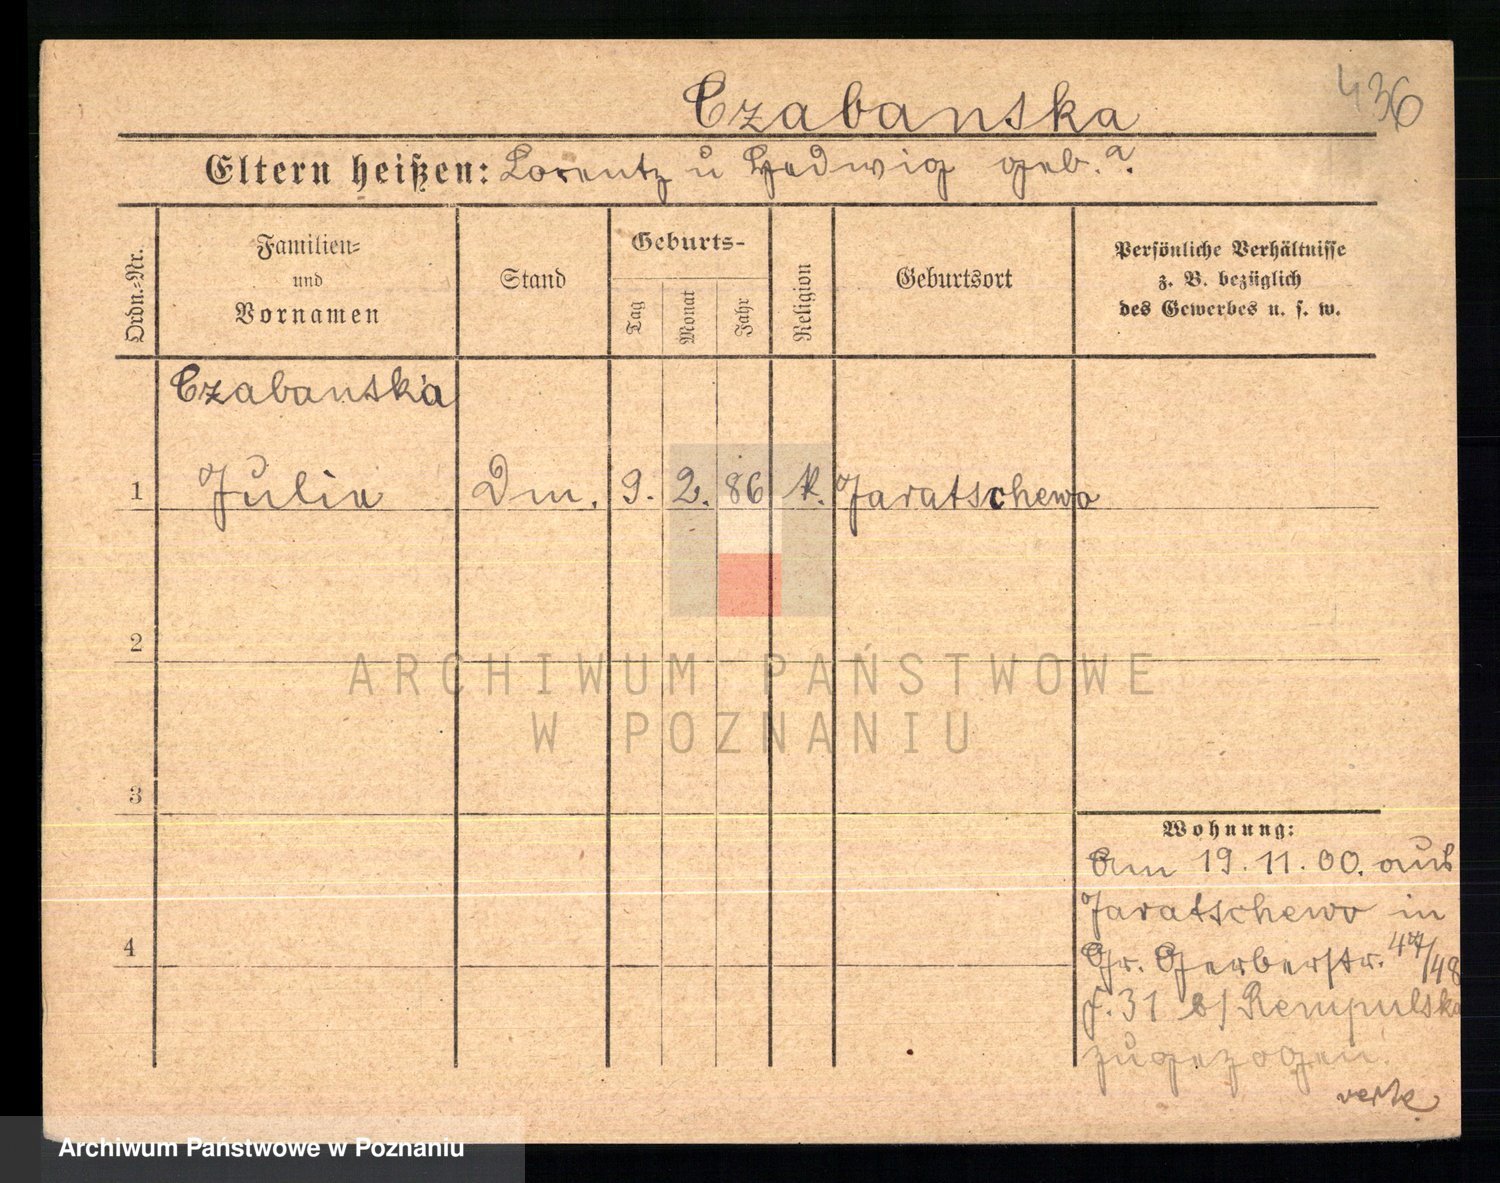 436
Czabanska
Eltern heißen: Lorentz u Hedwig geb. ?.
Ordn.-Nr.
Familien-
und
Vornamen
Stand
Geburts-
Tag
Monat
Jahr
Religion
Geburtsort
Persönliche Verhältnisse
z. B. bezüglich
des Gewerbes u. s. w.
Czabanska
1 Julia Dm. 9. 2. 86 k. Jaratschewo
2
ARCHIWUM PAŃSTWOWE
W POZNANIU
3
Wohnung:
Am 19.11.00. aus
Jaratschewo in
4
Gr. Gerberstr. 47/48
f. 31 b/ Rempulska
zugezogen.
Archiwum Państwowe w Poznaniu